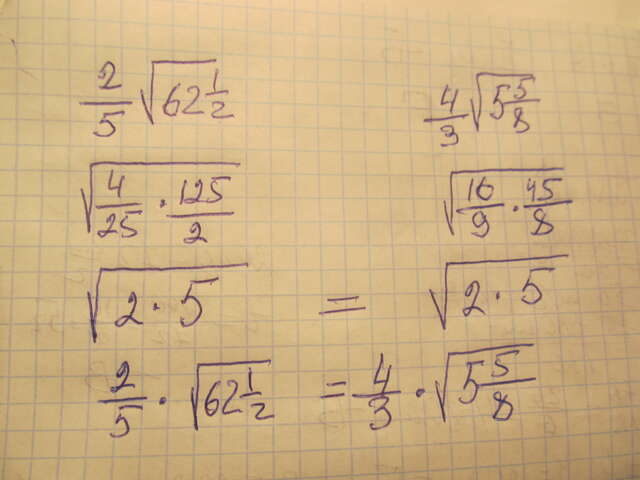 2/5 √(62 1/2) 4/3 √(5 5/8)
√(4/25 · 125/2) √(16/9 · 45/8)
√(2 · 5) = √(2 · 5)
2/5 · √(62 1/2) = 4/3 · √(5 5/8)